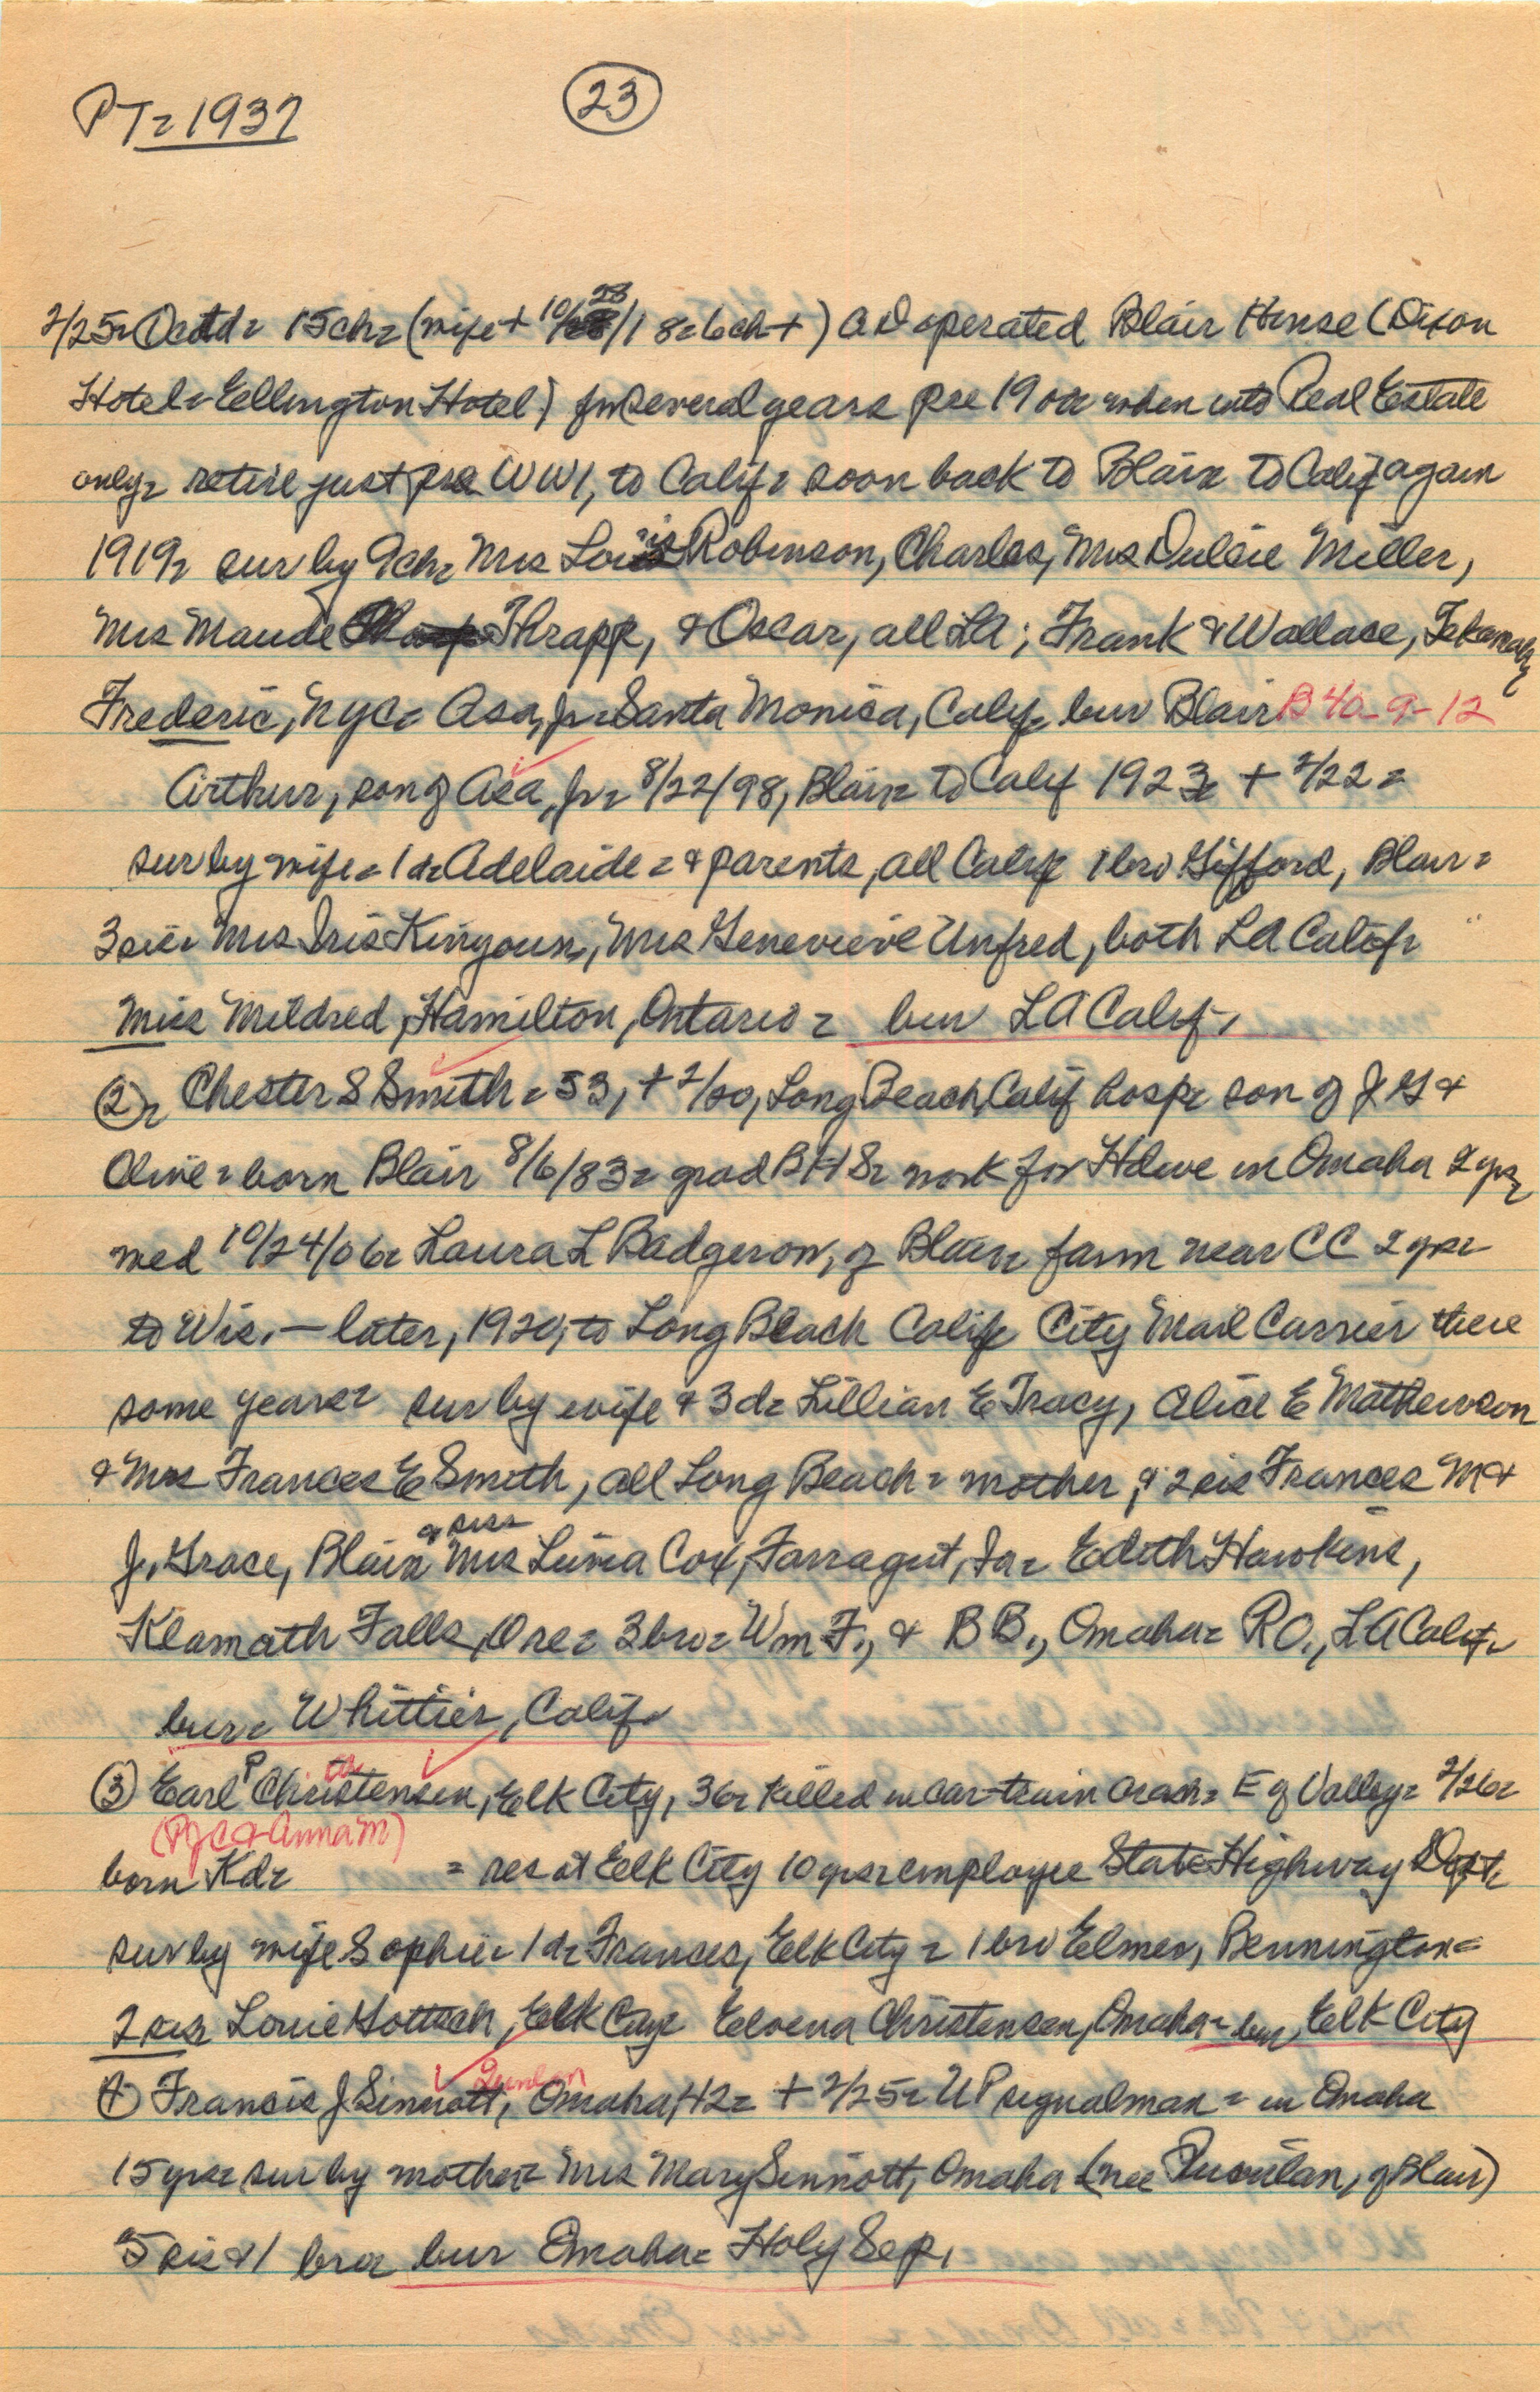 PT= 1937
(23)
2/25= = 15ch= (wife + 10/28/18= 6ch+) AD operated Blair House (Dixon
Hotel= Ellington Hotel) for several years pre 1900 when into Real Estate
only= retire just pre WW1, to Calif= soon back to Blair= to Calif again
1919= sur by 9ch= Mrs Lois Robinson, Charles, Mrs Dulsie Miller,
Mrs Maude Thrapp, & Oscar, all LA; Frank & Wallace, Tekamah=
Frederic, NYC= Asa, Jr= Santa Monica, Calif= bur Blair B 40-9-12
Arthur, son of Asa, Jr= 8/22/98, Blair= to Calif 1923= + 2/22=
sur by wife= 1 d= Adelaide= & parents, all Calif= 1 bro Gifford, Blair=
3 sis= Mrs Iris Kinyoun, Mrs Genevieve Unfred, both LA Calif=
Miss Mildred, Hamilton, Ontario= bur LA Calif,
(2)= Chester S Smith= 53, + 2/20, Long Beach, Calif hosp= son of J G &
Olive= born Blair 8/6/83= grad BHS= work for Hdwe in Omaha 2 yrs=
med 10/24/06= Laura L Badgerow, of Blair= farm near CC 2 yrs=
to Wis.— later, 1920, to Long Beach Calif= City Mail Carrier there
some years= sur by wife & 3 d= Lillian E Tracy, Alice E Mathewson
& Mrs Frances E Smith, all Long Beach= mother, & 2 sis Frances M &
J. Grace, Blair= Mrs Luma Cox, Farragut, Ia= Edith Hawkins,
Klamath Falls, Ore= 3 bro= Wm F., & B B., Omaha= R O., LA Calif=
bur= Whittier, Calif=
(3) Earl P Christensen, Elk City, 36= killed in car-train crash= E of Valley= 2/26=
(PJC & Anna M)
born Kd= = res at Elk City 10 yrs= employee State Highway Dept=
sur by wife Sophie= 1 d= Frances, Elk City= 1 bro Elmer, Bennington=
2 sis= Louie Hottsch, Elk City= Elvena Christensen, Omaha= bur, Elk City
Quinlan
(4) Francis J Sinnott, Omaha, 42= + 2/25= UP signalman= in Omaha
15 yrs= sur by mother= Mrs Mary Sinnott, Omaha (nee Quinlan, of Blair)
5 sis & 1 bro= bur Omaha= Holy Sep,